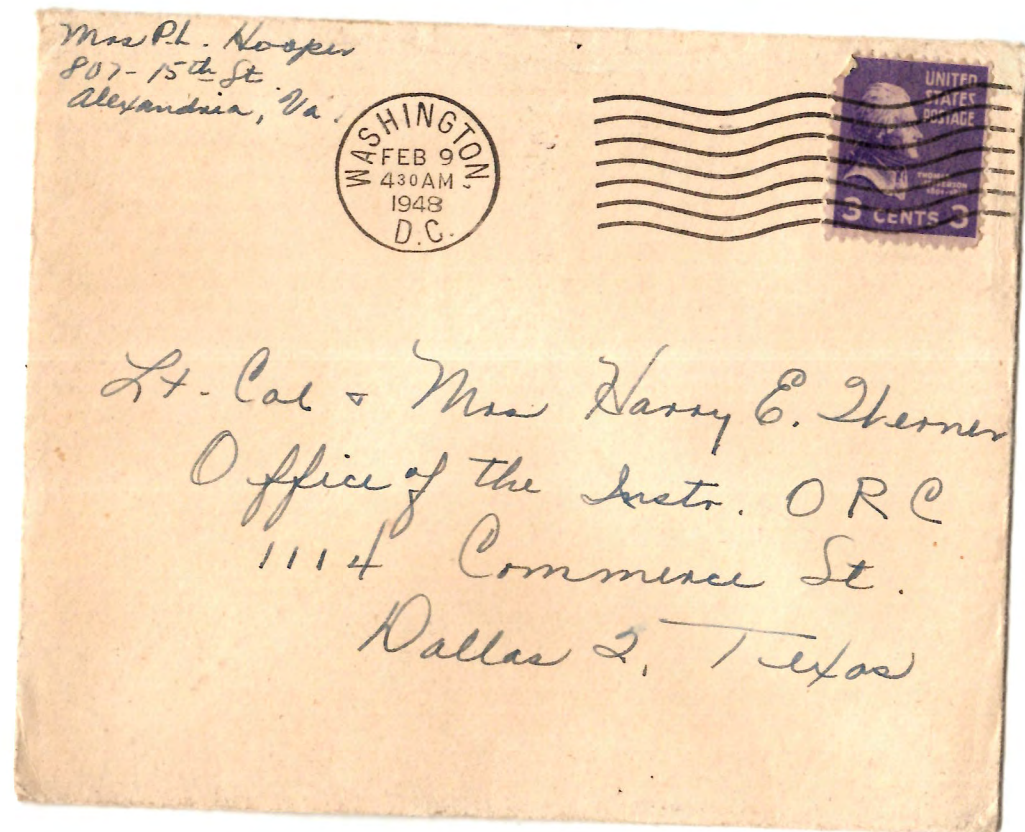 Mrs P.L. Hooper
807-15th St
Alexandria, Va.
WASHINGTON
FEB 9
430 AM
1948
D.C.
UNITED
STATES
POSTAGE
THOMAS
JEFFERSON
3 CENTS 3
Lt. Col & Mrs Harry E. Werner
Office of the Instr. ORC
1114 Commerce St.
Dallas 2, Texas